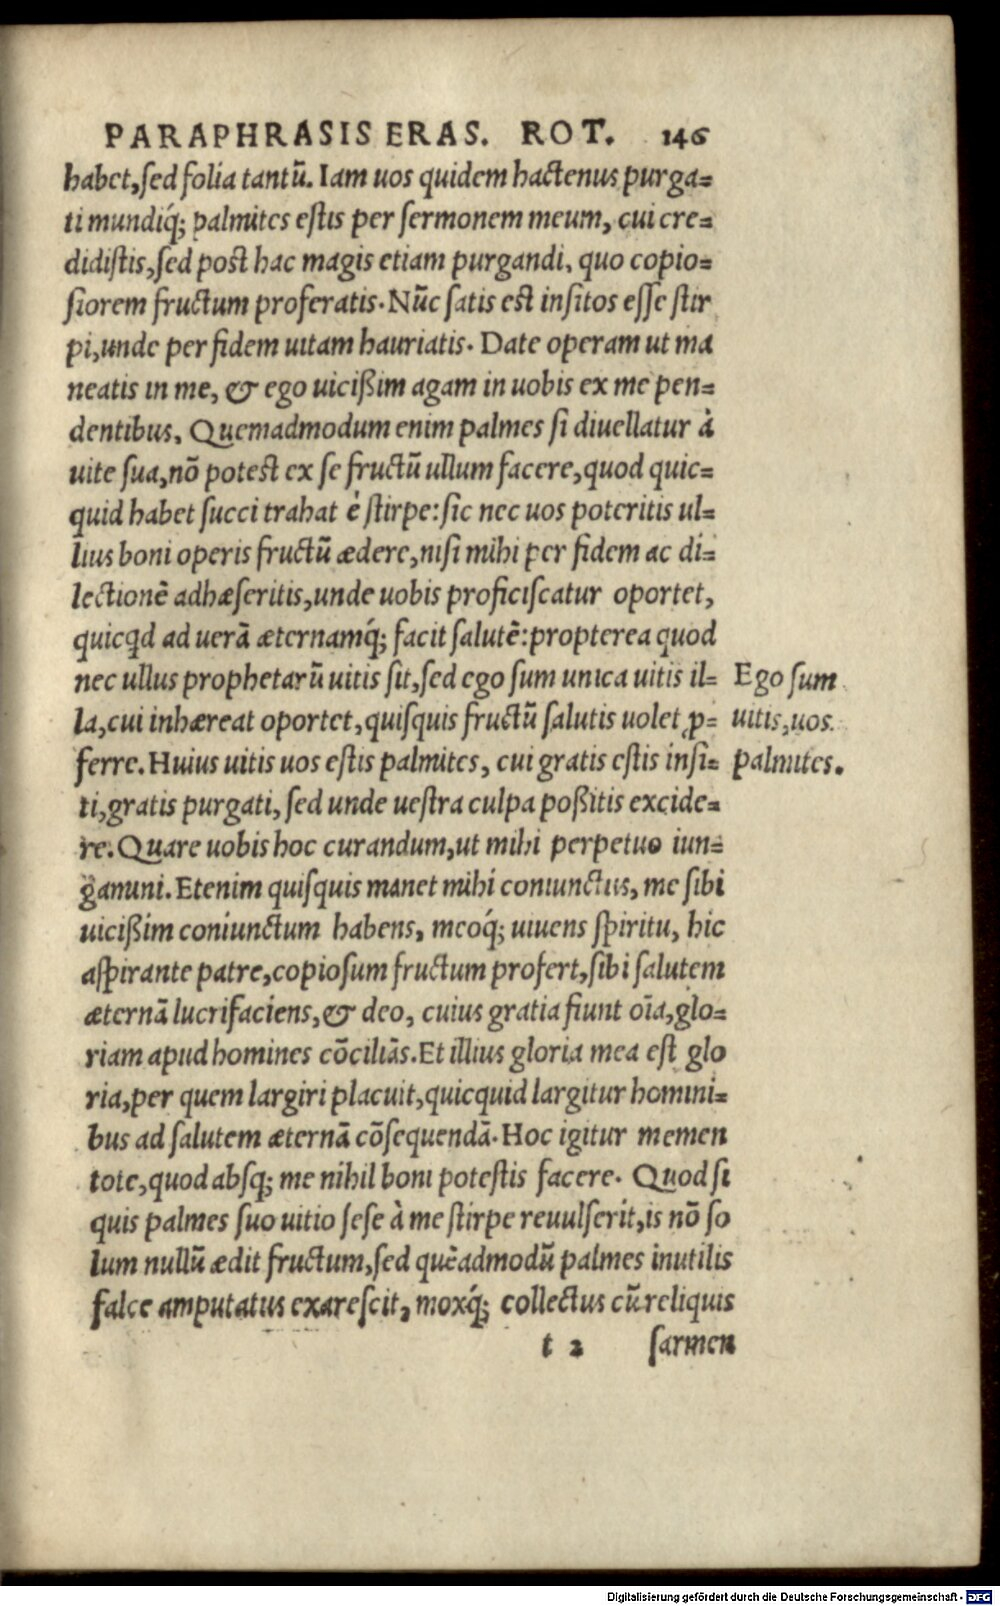 PARAPHRASIS ERAS. ROT. 146
habet, sed folia tantũ. Iam uos quidem hactenus purga=
ti mundiq́; palmites estis per sermonem meum, cui cre=
didistis, sed post hac magis etiam purgandi, quo copio=
siorem fructum proferatis. Nũc satis est insitos esse stir
pi, unde per fidem uitam hauriatis. Date operam ut ma
neatis in me, & ego uicißim agam in uobis ex me pen=
dentibus. Quemadmodum enim palmes si diuellatur à
uite sua, nõ potest ex se fructũ ullum facere, quod quic=
quid habet succi trahat è stirpe: sic nec uos poteritis ul=
lius boni operis fructũ ædere, nisi mihi per fidem ac di=
lectionẽ adhæseritis, unde uobis proficiscatur oportet,
quicqd ad uerã æternamq́; facit salutẽ: propterea quod
nec ullus prophetarũ uitis sit, sed ego sum unica uitis il=
la, cui inhæreat oportet, quisquis fructũ salutis uolet ꝓ=
ferre. Huius uitis uos estis palmites, cui gratis estis insi=
ti, gratis purgati, sed unde uestra culpa poßitis excide=
re. Quare uobis hoc curandum, ut mihi perpetuo iun=
gamini. Etenim quisquis manet mihi coniunctus, me sibi
uicißim coniunctum habens, meoq́; uiuens spiritu, hic
aspirante patre, copiosum fructum profert, sibi salutem
æternã lucrifaciens, & deo, cuius gratia fiunt oĩa, glo=
riam apud homines cõciliãs. Et illius gloria mea est glo
ria, per quem largiri placuit, quicquid largitur homini=
bus ad salutem æternã cõsequendã. Hoc igitur memen
tote, quod absq; me nihil boni potestis facere. Quod si
quis palmes suo uitio sese à me stirpe reuulserit, is nõ so
lum nullũ ædit fructum, sed quẽadmodũ palmes inutilis
falce amputatus exarescit, moxq́; collectus cũ reliquis
t 2 sarmen
Ego sum
uitis, uos
palmites.
Digitalisierung gefördert durch die Deutsche Forschungsgemeinschaft - DFG